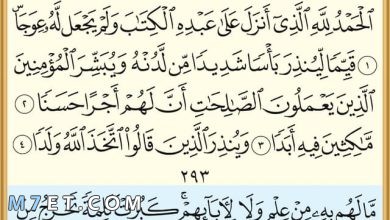 ٱلْحَمْدُ لِلَّهِ ٱلَّذِىٓ أَنزَلَ عَلَىٰ عَبْدِهِ ٱلْكِتَٰبَ وَلَمْ يَجْعَل لَّهُۥ عِوَجَاۜ
١ قَيِّمًا لِّيُنذِرَ بَأْسًا شَدِيدًا مِّن لَّدُنْهُ وَيُبَشِّرَ ٱلْمُؤْمِنِينَ
ٱلَّذِينَ يَعْمَلُونَ ٱلصَّٰلِحَٰتِ أَنَّ لَهُمْ أَجْرًا حَسَنًا ٢
مَّٰكِثِينَ فِيهِ أَبَدًا ٣ وَيُنذِرَ ٱلَّذِينَ قَالُوا۟ ٱتَّخَذَ ٱللَّهُ وَلَدًا ٤
٢٩٣
مَّا لَهُم بِهِۦ مِنْ عِلْمٍ وَلَا لِـَٔابَآئِهِمْ ۚ كَبُرَتْ كَلِمَةً تَخْرُجُ مِنْ
M7ET.COM